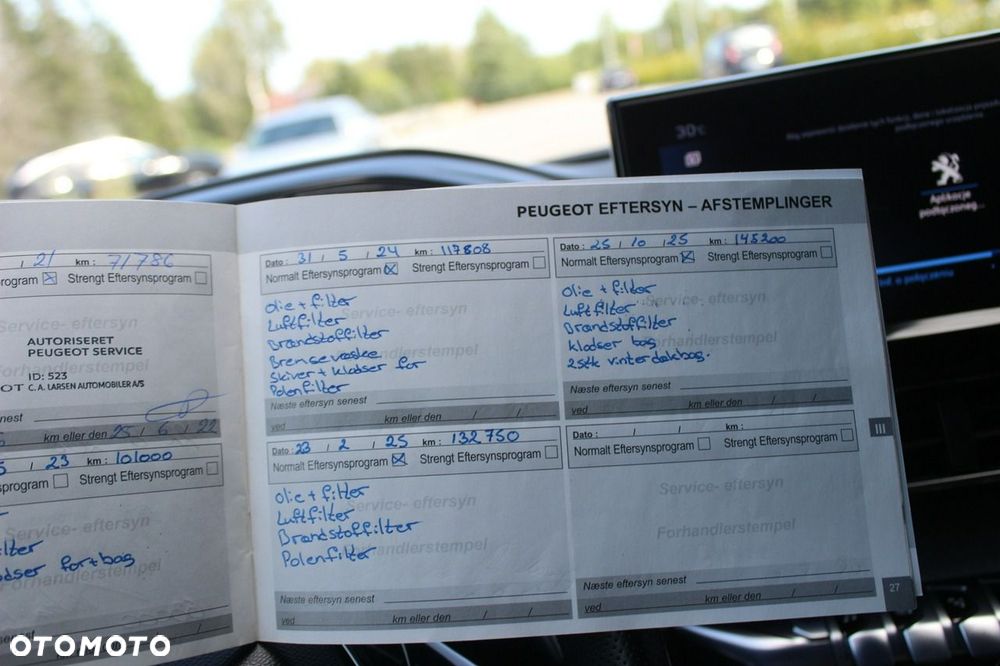 PEUGEOT EFTERSYN – AFSTEMPLINGER
/ 21 km : 71786
rogram ☒ Strengt Eftersynsprogram ☐
Service- eftersyn
AUTORISERET
PEUGEOT SERVICE
Forhandlerstempel
ID: 523
OT C. A. LARSEN AUTOMOBILER A/S
senest
km eller den 25 / 6 / 22
5 / 23 km : 101000
sprogram ☐ Strengt Eftersynsprogram ☐
Service- eftersyn
lter
dser for+bag
Forhandlerstempel
Dato : 31 / 5 / 24 km : 117808
Normalt Eftersynsprogram ☒ Strengt Eftersynsprogram ☐
Olie + filter
Service- eftersyn
Luftfilter
Brandstoffilter
Bremsevæske
Forhandlerstempel
Skiver + klodser for
Polenfilter
Næste eftersyn senest
ved km eller den / /
Dato : 23 / 2 / 25 km : 132750
Normalt Eftersynsprogram ☒ Strengt Eftersynsprogram ☐
Olie + filter
Service- eftersyn
Luftfilter
Brandstoffilter
Polenfilter
Forhandlerstempel
Næste eftersyn senest
ved km eller den / /
Dato : 25 / 10 / 25 km : 145200
Normalt Eftersynsprogram ☒ Strengt Eftersynsprogram ☐
Olie + filter
Service- eftersyn
Luftfilter
Brandstoffilter
Klodser bag
Forhandlerstempel
2stk vinterdækbag.
Næste eftersyn senest
ved km eller den / /
Dato : / / km :
Normalt Eftersynsprogram ☐ Strengt Eftersynsprogram ☐
Service- eftersyn
Forhandlerstempel
Næste eftersyn senest
ved km eller den / /
III
27
30°C
Aplikacje
podłączoneg...
OTOMOTO